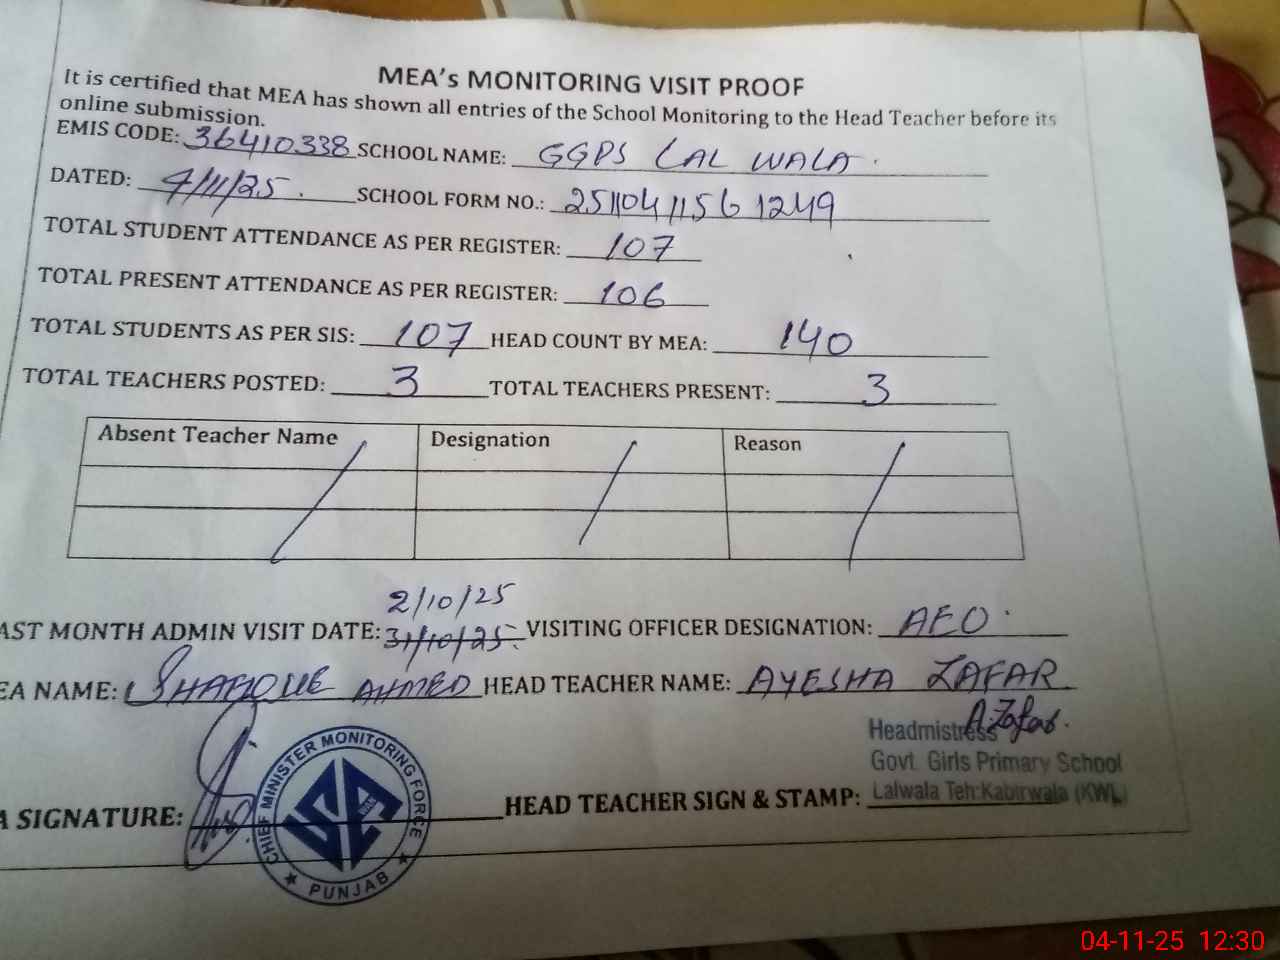 MEA's MONITORING VISIT PROOF
It is certified that MEA has shown all entries of the School Monitoring to the Head Teacher before its
online submission.
EMIS CODE: 36410338 SCHOOL NAME: GGPS LAL WALA.
DATED: 4/11/25. SCHOOL FORM NO.: 25110411561249
TOTAL STUDENT ATTENDANCE AS PER REGISTER: 107
TOTAL PRESENT ATTENDANCE AS PER REGISTER: 106
TOTAL STUDENTS AS PER SIS: 107 HEAD COUNT BY MEA: 140
TOTAL TEACHERS POSTED: 3 TOTAL TEACHERS PRESENT: 3
Absent Teacher Name Designation Reason
2/10/25
AST MONTH ADMIN VISIT DATE: 31/10/25. VISITING OFFICER DESIGNATION: AEO.
EA NAME: SHAFIQUE AHMED HEAD TEACHER NAME: AYESHA ZAFAR
A.Zafar.
Headmistress
Govt. Girls Primary School
Lalwala Teh:Kabirwala (KWL)
A SIGNATURE: HEAD TEACHER SIGN & STAMP:
CHIEF MINISTER MONITORING FORCE
PUNJAB
04-11-25 12:30